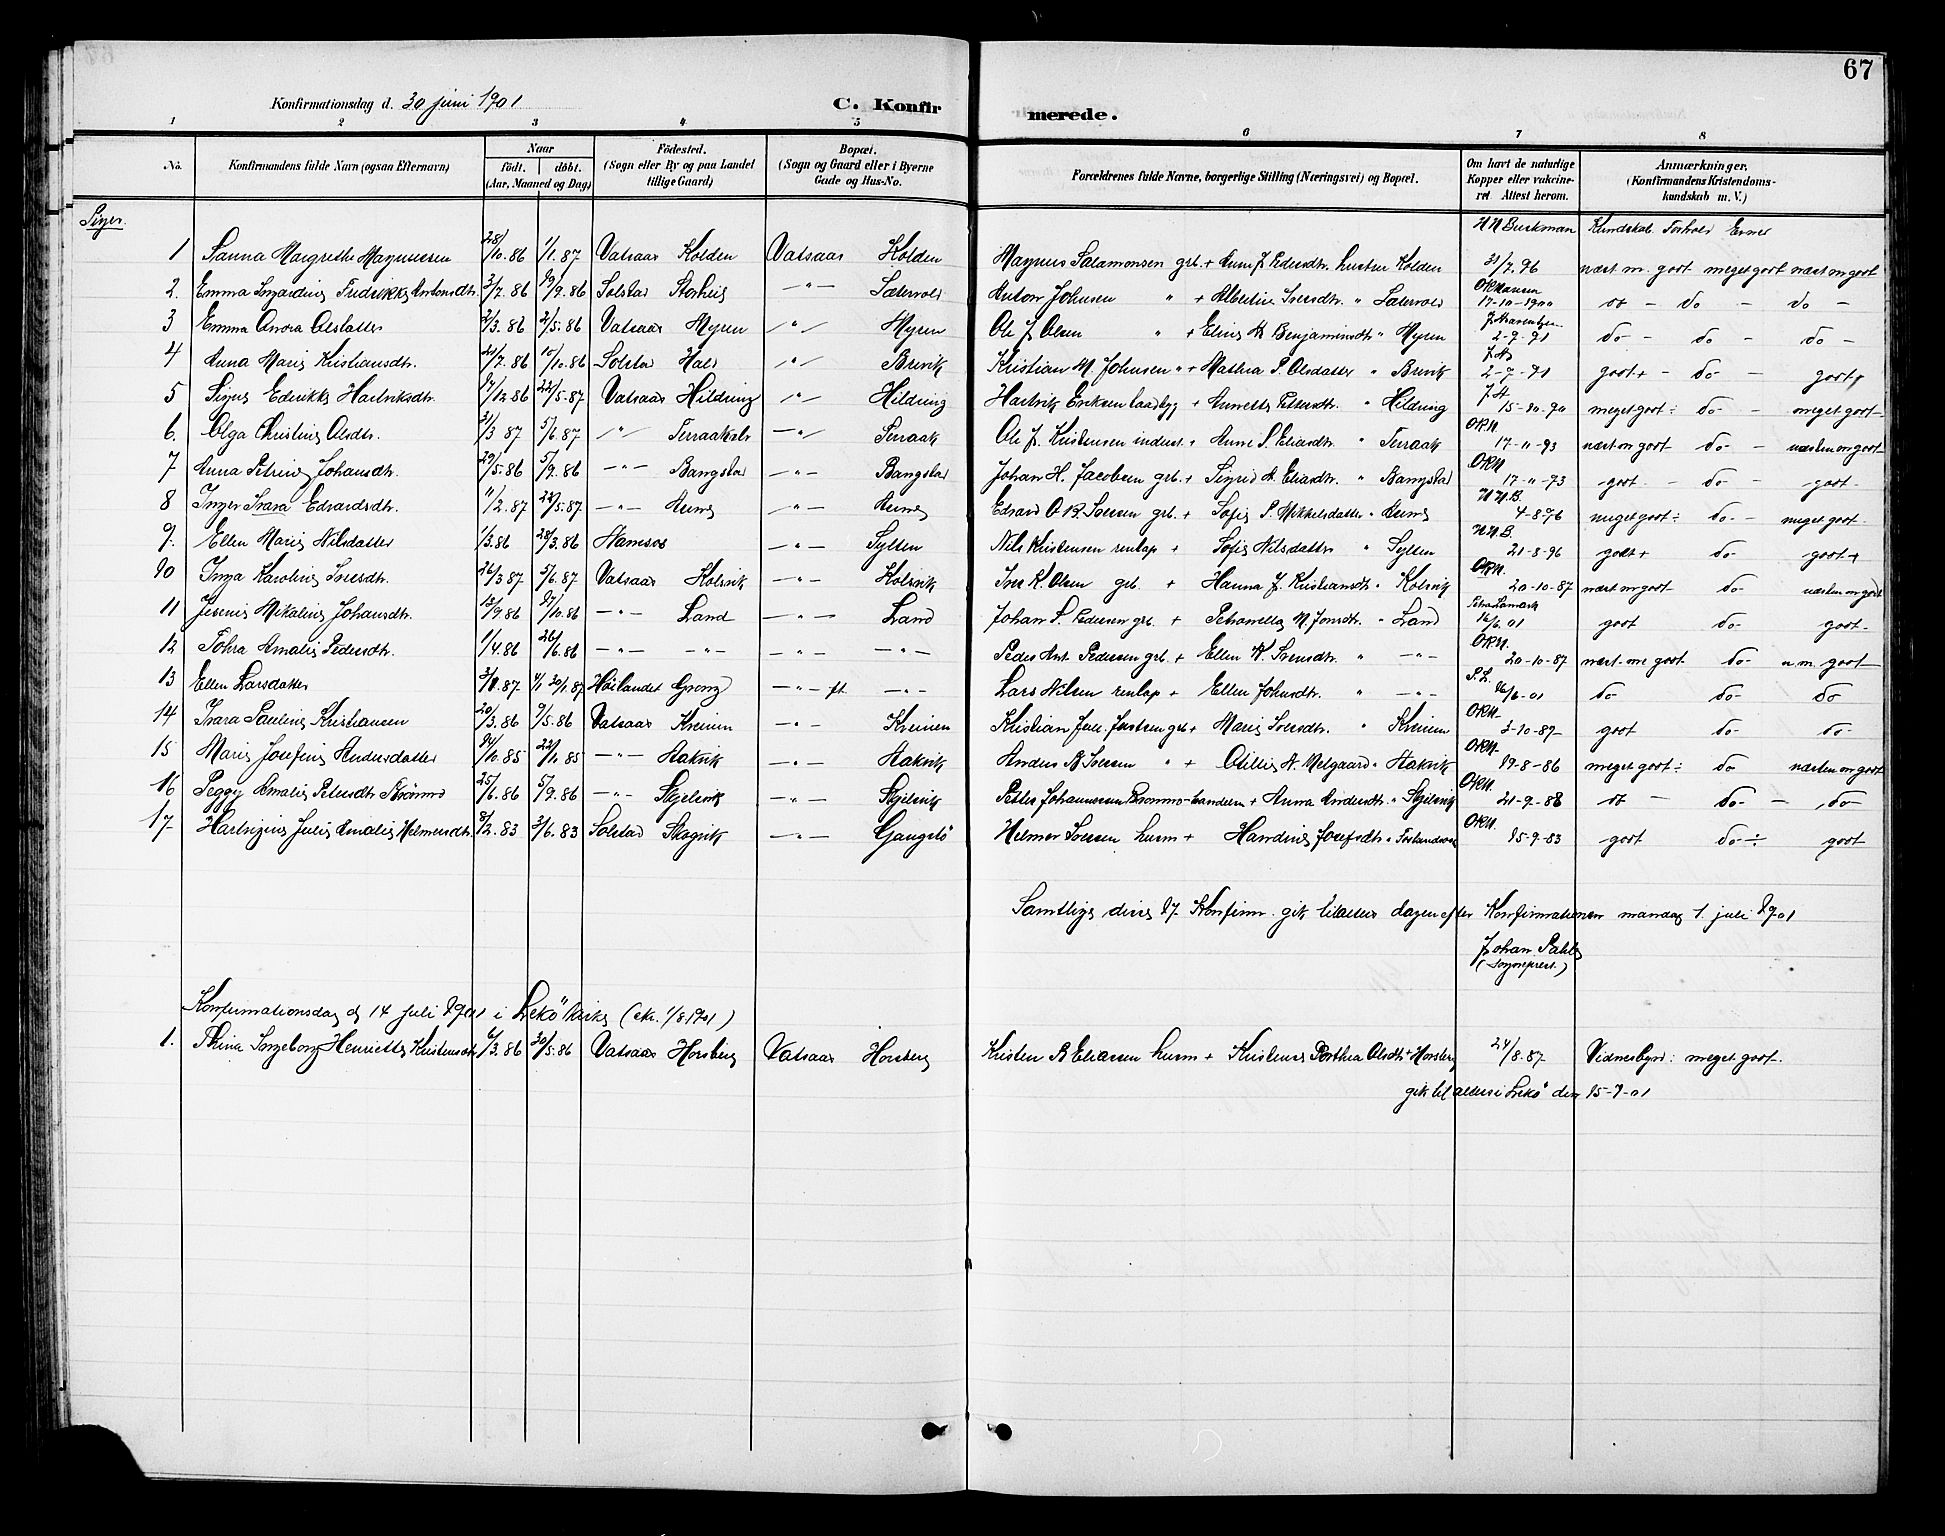 67
Konfirmationsdag d. 30 juni 1901
C. Konfirmerede.
1 2 3 4 5 6 7 8
No.
Konfirmandens fulde Navn (ogsaa Efternavn)
Naar
födt. döbt.
(Aar, Maaned og Dag)
Födested.
(Sogn eller By og paa Landet
tillige Gaard)
Bopæl.
(Sogn og Gaard eller i Byerne
Gade og Hus-No.
Forældrenes fulde Navne, borgerlige Stilling (Næringsvei) og Bopæl.
Om havt de naturlige
Kopper eller vakcine-
ret Attest herom.
Anmærkninger,
(Konfirmandens Kristendoms-
kundskab m. V.)
Piger.
Kundskab. Forhold Evner
1 Sanna Margrethe Magnussen 28/10.86 1/1.87 Vatsaas Kolden Vatsaas Kolden Magnus Salamonsen grb. + Anne J. Pedersdtr. hustru Kolden 31/7.96 næst m. godt meget godt næst m godt
2. Emma Ingardine Fredrikke Antonsdtr. 3/7.86 19/9.86 Solstad Storheig —"— Sætervold Anton Johnsen " + Albertine Iversdtr. " Sætervold O K Hansen 17-10-1900 do — do — do —
3 Emma Anora Olsdatter 2/3.86 2/5.86 Vatsaas Myren —"— Myren Ole J. Olsen " + Eline M Benjaminsdtr " Myren 2-9-91 do — do — do —
4 Anna Marie Kristiansdtr. 21/7.86 10/10.86 Solstad Hals —"— Brevik Kristian M. Johnsen " + Mathea P. Olsdatter " Brevik 2-7-91 godt + — do — godt +
5 Signe Edrikke Hartviksdtr. 17/12.86 22/5-87 Vatsaas Hildring —"— Hildring Hartvik Eriksen baadbyg + Annette Petersdtr. " Hildring 15-10-90 meget godt ÷ do — meget godt —
6. Olga Christine Olsdtr. 31/3 87 5/6.87 —"— Terraakele —"— Terraak Ole J. Kristensen inderst + Anne S. Eliasdtr. " Terraak OKH 17-11-93 næst m godt — do — næsten m godt —
7 Anna Petrine Johansdtr. 29/5.86 5/9.86 —"— Bangstad —"— Bangstad Johan H. Jacobsen grb. + Sigrid A. Eliasdtr. " Bangstad OKH 17-11-93 godt — do — godt.
8 Inger Ivara Edvardsdtr. 11/2.87 22/5.87 —"— Aunes —"— Aunes Edvard O. B. Iversen grb + Sofie P. Mikkelsdatter " Aunes H N.B. 4-8-96 meget godt ÷ do — meget godt.
9. Ellen Marie Nilsdatter 1/3.86 28/3.86 Namsos —"— Sylten Nils Kristensen renlap + Sofie Nilsdatter " Sylten H N.B. 21-8-96 godt + do — godt +
10 Inga Karoline Iversdtr. 26/3 87 5/6.87 Vatsaas Kolsvik —"— Kolsvik Iver K. Olsen grb. + Hanna J. Kristiansdtr " Kolsvik OKH. 20-10-87 næst m godt do — næsten m godt
11 Jensine Mikaline Johansdtr. 13/9.86 17/10.86 —"— Land —"— Land Johan S. Pedersen grb. + Petronelle M. Jonsdtr. " Land 16/6.01 godt do — godt —
12 Tohra Amalie Pedersdtr. 1/4.86 26/6.86 —"— —"— —"— —"— Peder Ant. Pedersen grb + Ellen K. Svensdtr. " —"— OKH. 20-10-87 næst. m. godt do — n m. godt
13 Ellen Larsdatter 3/1.87 4/1 30/1.87 Höilandet Grong —"— ft —"— Lars Nilsen renlap + Ellen Johnsdtr. " —"— P.L. 16/6-01 do do — do
14 Ivara Pauline Kristiansen 20/3.86 9/5.86 Vatsaas Kveinen —"— Kveinen Kristian Jul. Justsen grb + Marie Iversdtr. " Kveinen OKH. 3-10-87- godt do — do —
15 Marie Josefine Andersdatter 24/10.85 22/11 85 —"— Aakvik —"— Aakvik Anders B Iversen " + Otillie A. Melgaard " Aakvik OKH. 19-8-86 meget godt ÷ do næsten m godt
16 Peggy Amalie Petersdtr Brömmo 25/6.86 5/9.86 —"— Skjelvik —"— Skjelvik Petter Johannessen Brommo-handelsm + Anna Andersdtr. " Skjelvik OKH. 21-9-88 do — do — do —
17 Hartvigine Julie Amalie Helmersdtr. 8/2.83 3/6.83 Solstad Skogvik —"— Gangstö Helmer Iversen husm + Handine Josefsdtr " OKH. 15-9-83 godt do — ÷ godt
Samtlige disse 17 Konfirm. gik til alters dagen efter Konfirmationen mandag 1. juli 1901
Johan Pahle
(Sogneprest.)
Konfirmationsdag d 14 juli 1901 i Lekö kirke (ekr. 1/8 1901)
1. Trina Ingeborg Henriette Kristensdtr 6/3.86 30/5.86 Vatsaas Horsberg Vatsaas Horsberg Kristen B Eliassen husm + Kristense Dorthea Olsdtr " Horsberg 24/8-87 Vidnesbyrd: meget godt.
gik til alters i Lekö den 15-7-01